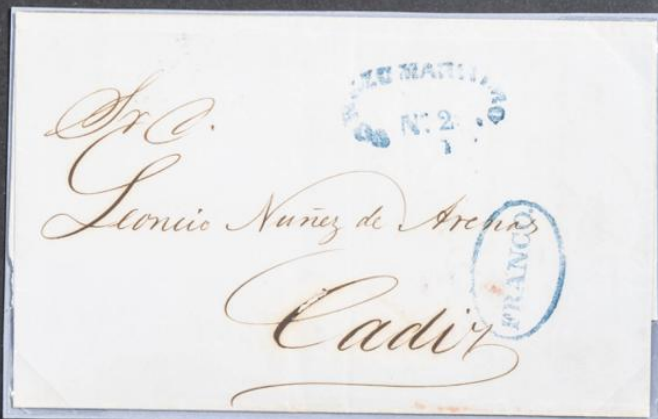 CORREO MARITIMO
Nº 2
Sr D.
Leoncio Nuñez de Arenas
FRANCO.
Cadiz